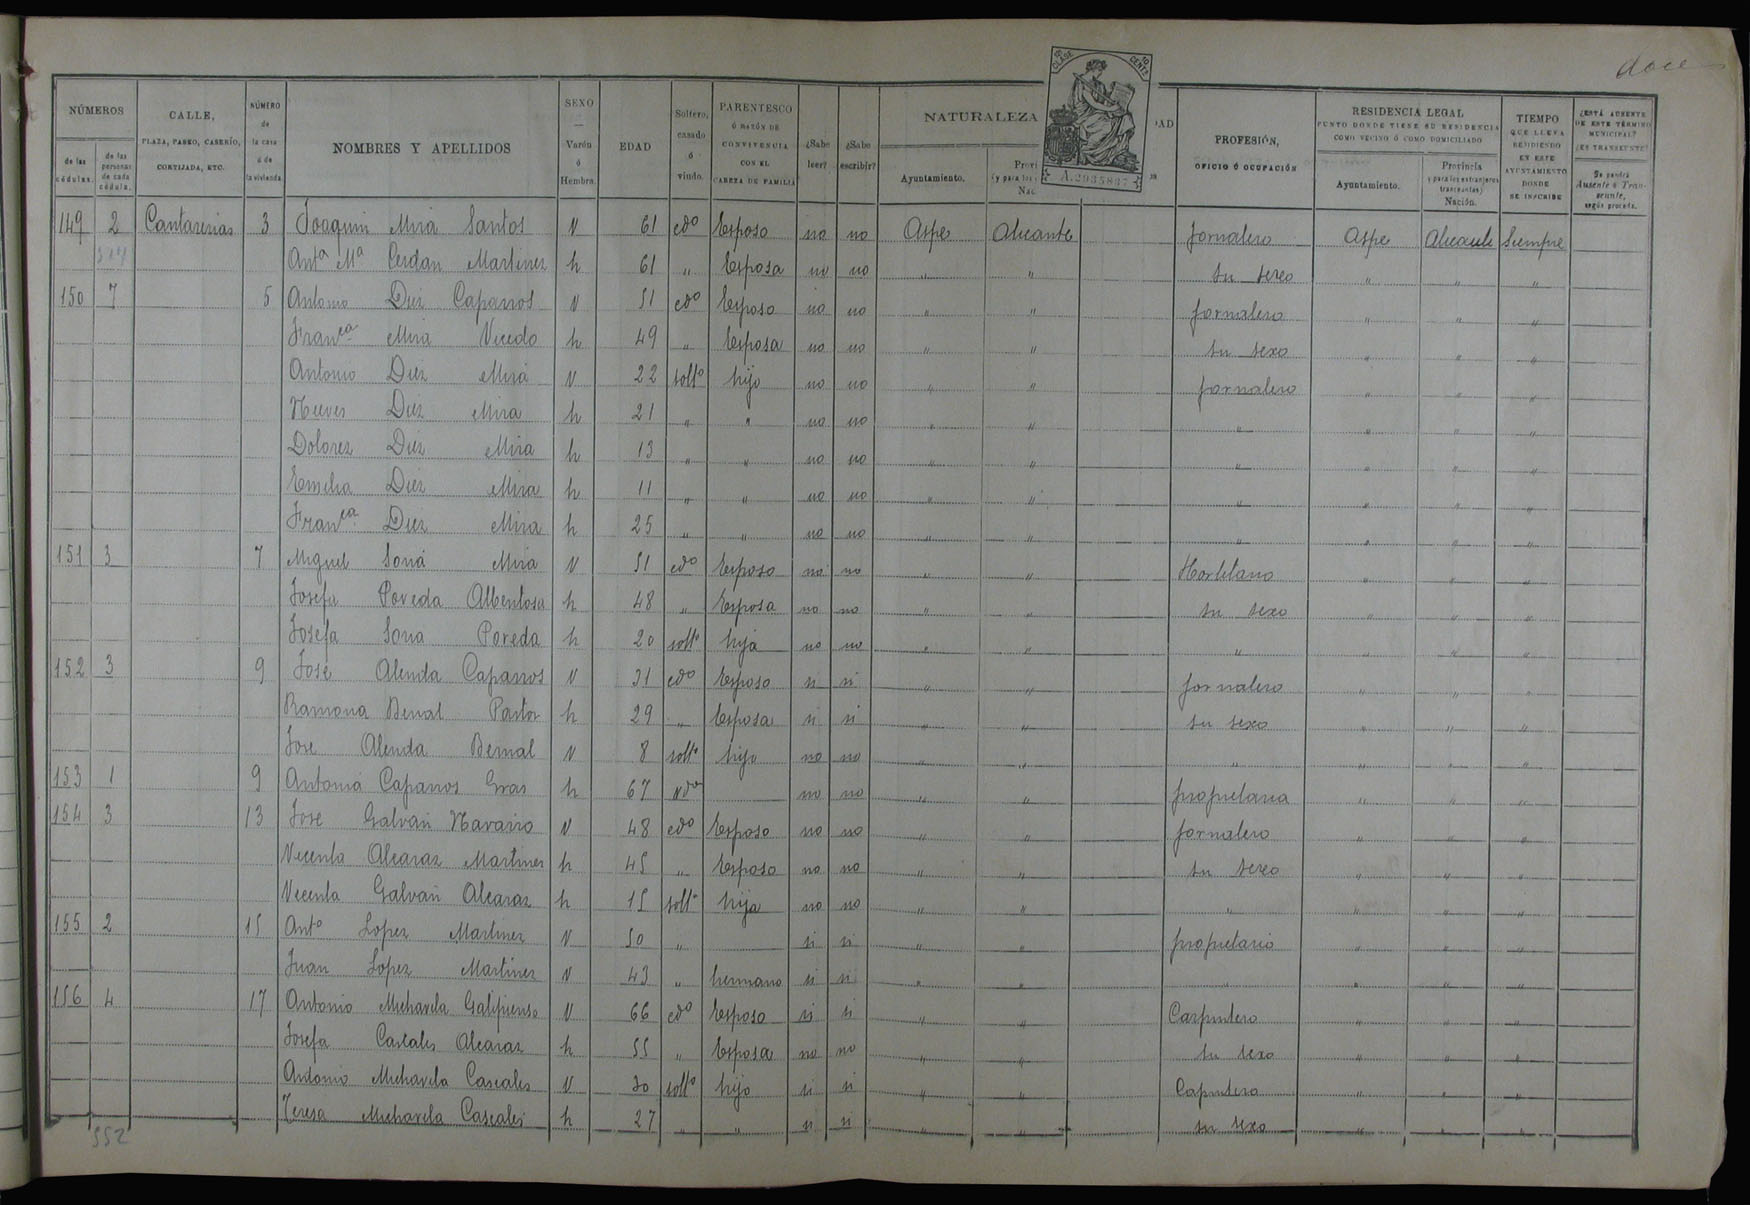 doce
NÚMEROS
de las cédulas.
de las personas de cada cédula.
CALLE,
PLAZA, PASEO, CASERÍO,
CORTIJADA, ETC.
NÚMERO de la casa ó de la vivienda
NOMBRES Y APELLIDOS
SEXO
Varón ó Hembra.
EDAD
Soltero, casado ó viudo.
PARENTESCO
Ó RAZÓN DE
CONVIVENCIA
CON EL
CABEZA DE FAMILIA
¿Sabe leer?
¿Sabe escribir?
NATURALEZA
Ayuntamiento.
Provi
(y para los
Nac
8ª CLASE 10 CENTS
A.2935897
DAD
PROFESIÓN,
OFICIO Ó OCUPACIÓN
RESIDENCIA LEGAL
PUNTO DONDE TIENE SU RESIDENCIA
COMO VECINO Ó COMO DOMICILIADO
Ayuntamiento.
Provincia
(y para los extranjeros transeuntes)
Nación.
TIEMPO
QUE LLEVA
RESIDIENDO
EN ESTE
AYUNTAMIENTO
DONDE
SE INSCRIBE
¿ESTÁ AUSENTE
DE ESTE TÉRMINO
MUNICIPAL?
¿ES TRANSEUNTE?
Se pondrá
Ausente ó Tran-
seunte,
según proceda.
149 2 Cantarerias 3 Joaquin Mira Santos V 61 cdo Esposo no no Aspe Alicante Jornalero Aspe Alicante Siempre
Antª Mª Cerdan Martinez h 61 " Esposa no no " " su sexo " " "
150 7 5 Antonio Diez Caparros V 51 cdo Esposo no no " " Jornalero " " "
Franca Mira Vicedo h 49 " Esposa no no " " su sexo " " "
Antonio Diez Mira V 22 solto hijo no no " " jornalero " " "
Nieves Diez Mira h 21 " " no no " " " " " "
Dolores Diez Mira h 13 " " no no " " " " " "
Emilia Diez Mira h 11 " " no no " " " " " "
Franca Diez Mira h 25 " " no no " " " " " "
151 3 7 Miguel Soria Mira V 51 cdo Esposo no no " " Hortelano " " "
Josefa Poveda Albentosa h 48 " Esposa no no " " su sexo " " "
Josefa Soria Poveda h 20 solto hija no no " " " " " "
152 3 9 José Alenda Caparros V 31 cdo Esposo si si " " Jornalero " " "
Ramona Bernal Pastor h 29 " Esposa si si " " su sexo " " "
Jose Alenda Bernal V 8 solto hijo no no " " " " " "
153 1 9 Antonia Caparros Gras h 67 vdo no no " " propietaria " " "
154 3 13 Jose Galvañ Navarro V 48 cdo Esposo no no " " Jornalero " " "
Vicenta Alcaraz Martinez h 45 " Esposo no no " " su sexo " " "
Vicenta Galvañ Alcaraz h 15 solto hija no no " " " " " "
155 2 15 Anto Lopez Martinez V 50 " si si " " propietario " " "
Juan Lopez Martinez V 43 " hermano si si " " " " " "
156 4 17 Antonio Michavila Galipienso V 66 cdo Esposo si si " " Carpintero " " "
Josefa Cascales Alcaraz h 55 " Esposa no no " " su sexo " " "
Antonio Michavila Cascales V 30 solto hijo si si " " Capintero " " "
Teresa Michavila Cascales h 27 " " si si " " su sexo " " "
552